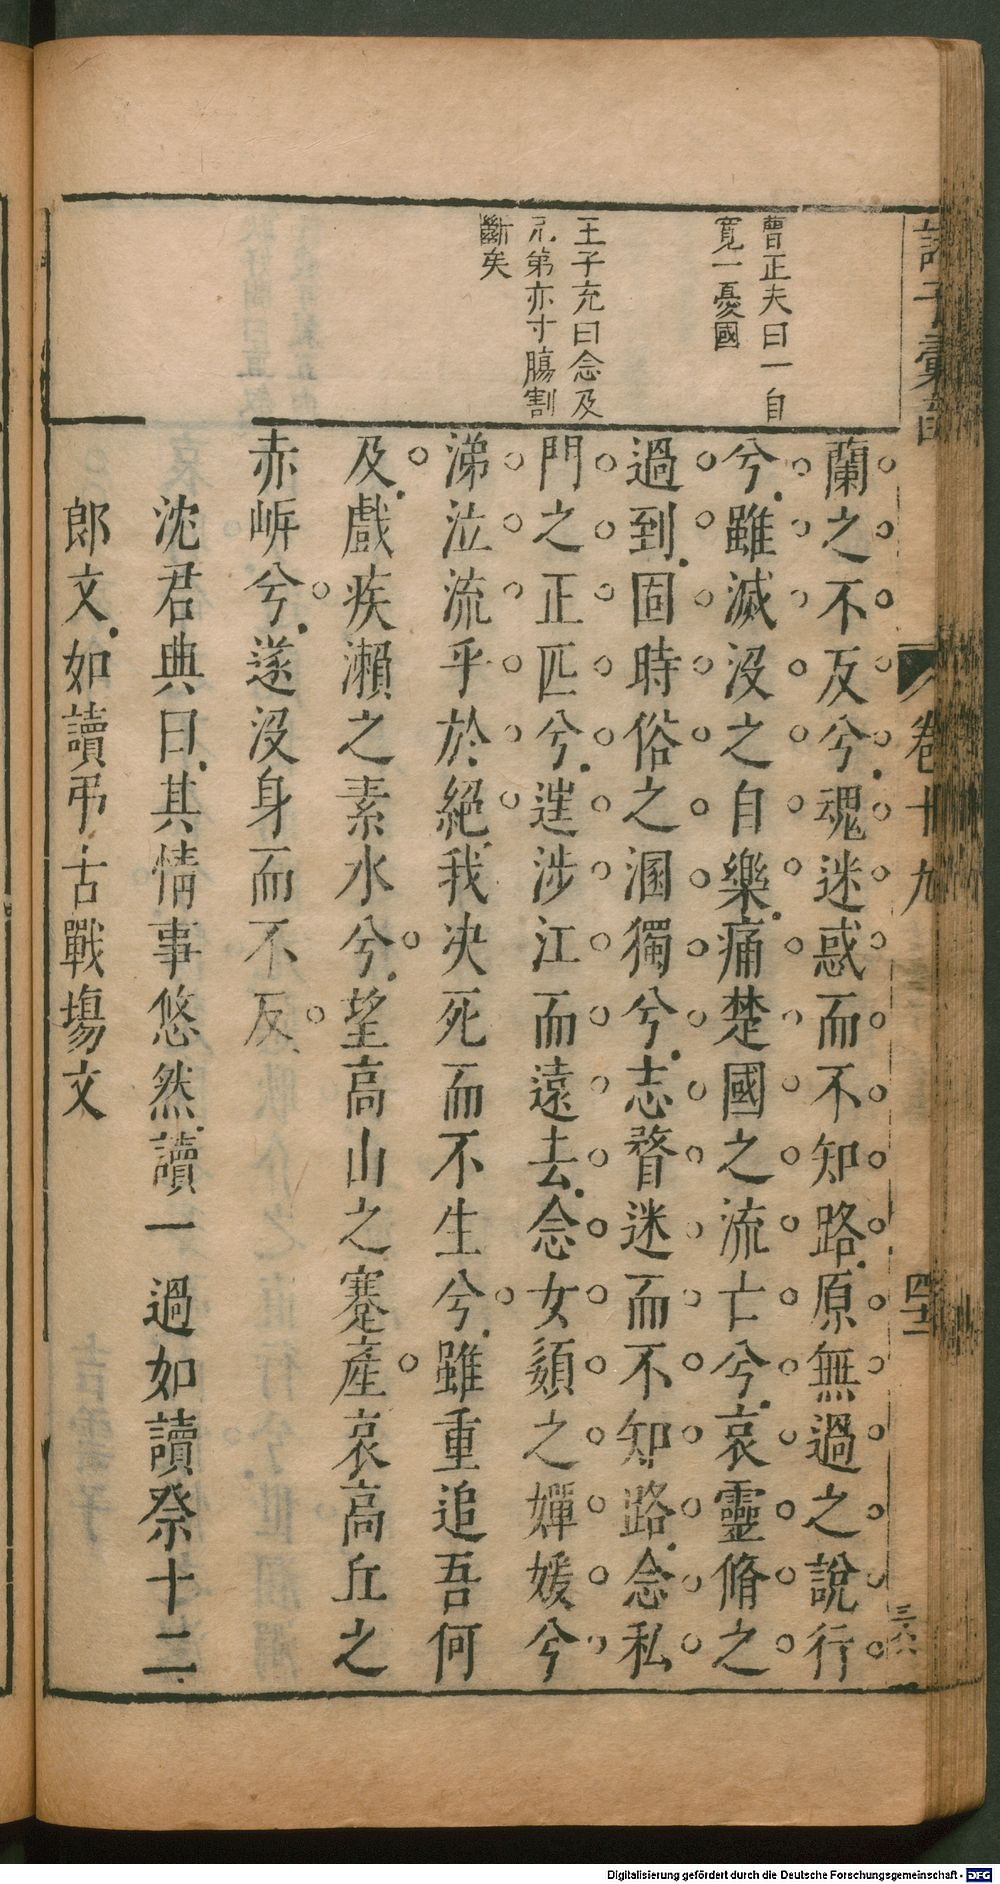 諸子彙函
卷十九
四十二
曹正夫曰一自
寛一憂國
王子充曰念及
兄第亦寸膓割
斷矣
蘭之不反兮魂迷惑而不知路原無過之說行
兮雖滅沒之自樂痛楚國之流亡兮哀靈脩之
過到固時俗之溷獨兮志瞀迷而不知路念私
門之正匹兮遳涉江而遠去念女嬃之嬋媛兮
涕泣流乎於絕我决死而不生兮雖重追吾何
及戲疾瀨之素水兮望高山之蹇產哀高丘之
赤岍兮遂沒身而不反
沈君典曰其情事悠然讀一過如讀祭十二
郎文如讀弔古戰塲文
Digitalisierung gefördert durch die Deutsche Forschungsgemeinschaft - DFG